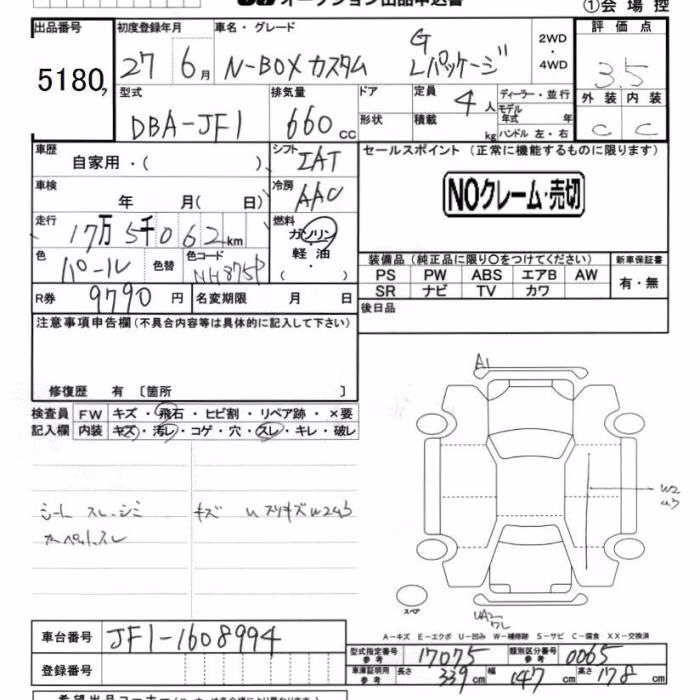 オークション出品申込書
①会場控
出品番号 初度登録年月 車名・グレード 評価点
5180 27 6月 N-BOXカスタム G Lパッケージ 2WD・4WD 3.5
型式 排気量 ドア 定員 ディーラー・並行 外装 内装
DBA-JF1 660cc 4人 モデル年式 年 C C
形状 積載 kg ハンドル 左・右
車歴 シフト セールスポイント (正常に機能するものに限ります)
自家用・( ) IAT
車検 冷房
年 月( 日) AAC
NOクレーム・売切
走行 燃料
17万5千062km ガソリン
軽油
( ・ )
色 色替 色コード 装備品(純正品に限り〇をつけてください) 新車保証書
パール NH875P PS PW ABS エアB AW 有・無
SR ナビ TV カワ
R券 9790円 名変期限 月 日 後日品
注意事項申告欄(不具合内容等は具体的に記入して下さい)
修復歴 有 〔箇所 〕
検査員 FW キズ・飛石・ヒビ割・リペア跡・×要
記入欄 内装 キズ・汚レ・コゲ・穴・スレ・キレ・破レ
A1
シート スレ シミ
カーペットスレ
キズ
W2
スペア
A-キズ E-エクボ U-凹み W-補修跡 S-サビ C-腐食 XX-交換済
車台番号 JF1-1608994
型式指定番号 参考 17075 類別区分番号 参考 0065
登録番号
車庫証明用 参考 長さ 339cm 幅 147cm 高さ 178cm